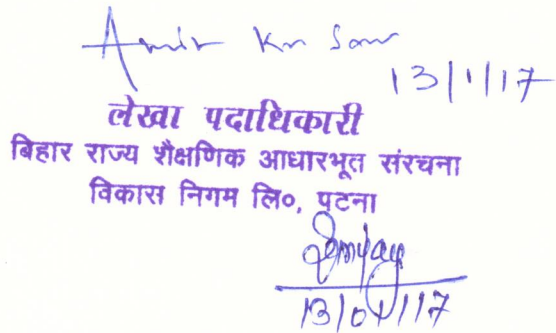 Amir Kr
13/1/17
लेखा पदाधिकारी
बिहार राज्य शैक्षणिक आधारभूत संरचना
विकास निगम लि०, पटना
13/01/17